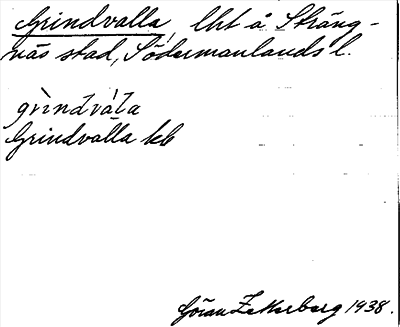 Grindvalla, lht å Sträng-
näs stad, Södermanlands l.
grìndvála
Grindvalla kb
Göran Zetterberg 1938.